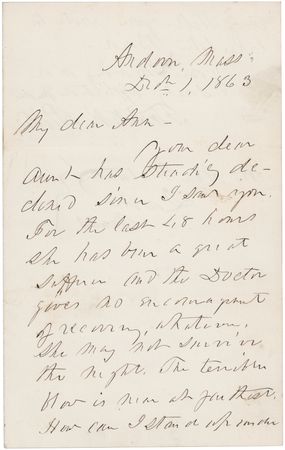 Andover, Mass.
Decm 1, 1863
My dear Ann -
Your dear
Aunt has steadily de-
clined since I saw you.
For the last 48 hours
she has been a great
sufferer and the Doctor
gives no encouragement
of recovery, whatever.
She may not survive
the night. The terrible
blow is near at farthest.
How can I stand up under